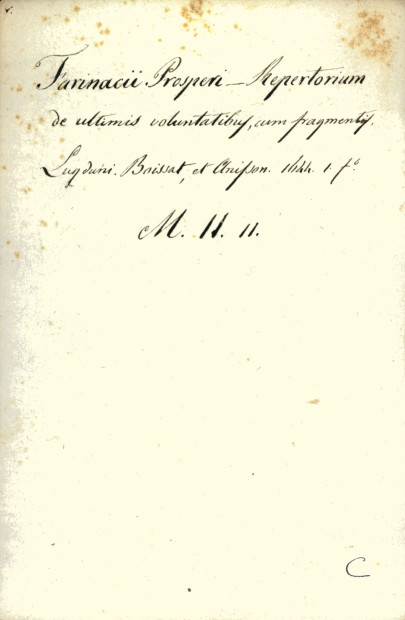 Farinacii Prosperi — Repertorium
de ultimis voluntatibus, cum fragmentis.
Lugduni. Boissat, et Anisson. 1644. 1. fº
M. II. 11.
C